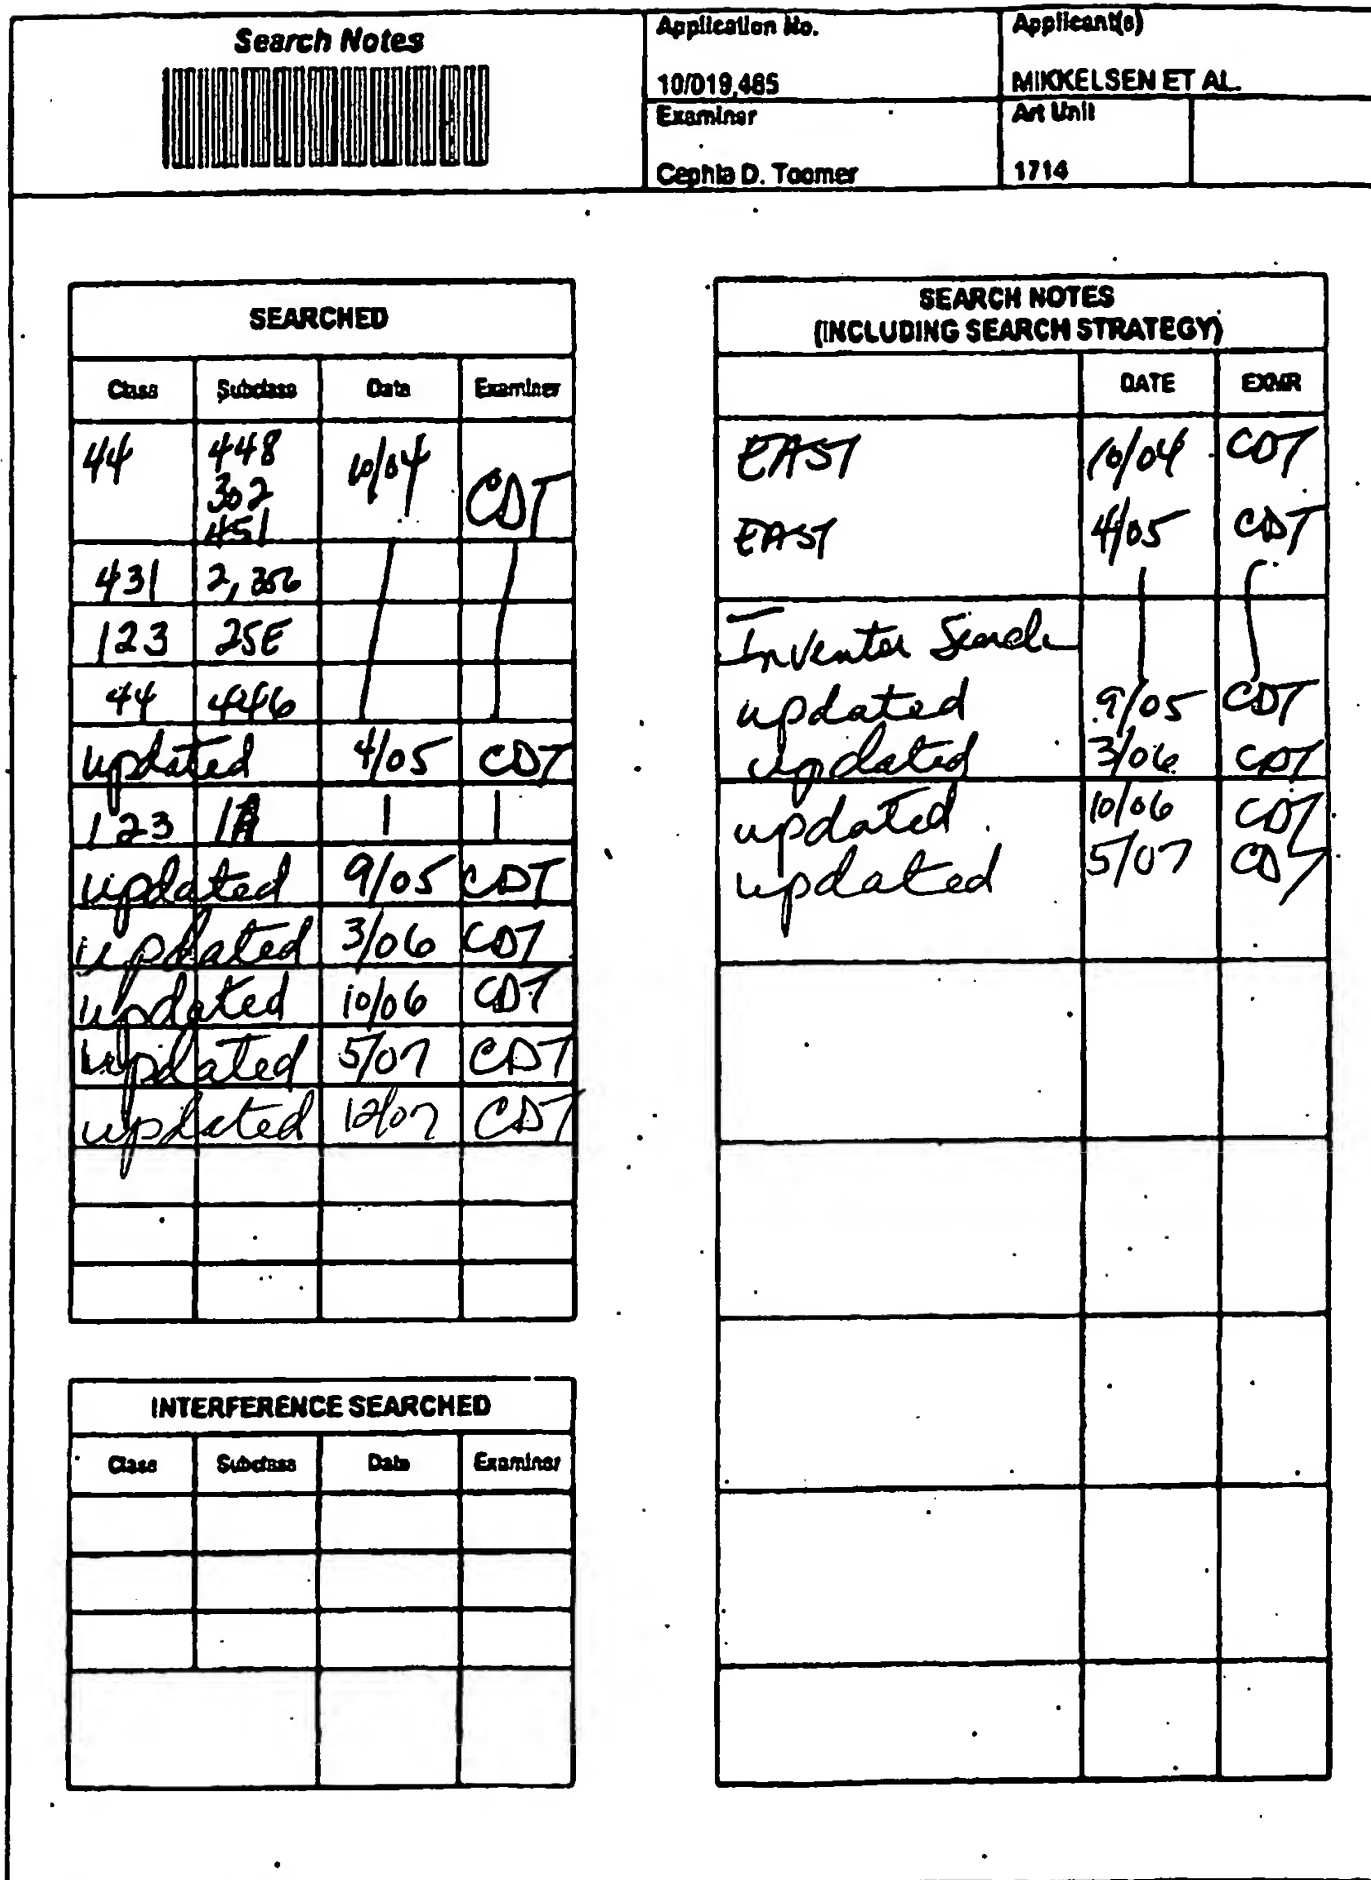 Search Notes
Application No.
10/019,485
Applicant(s)
MIKKELSEN ET AL.
Examiner
Cephia D. Toomer
Art Unit
1714
SEARCHED
Class Subclass Date Examiner
44 448 10/04 CDT
302
451
431 2, 356
123 25E
44 446
updated 4/05 CDT
123 1A
updated 9/05 CDT
updated 3/06 CDT
updated 10/06 CDT
updated 5/07 CDT
updated 12/07 CDT
INTERFERENCE SEARCHED
Class Subclass Date Examiner
SEARCH NOTES
(INCLUDING SEARCH STRATEGY)
DATE EXMR
EAST 10/04 CDT
EAST 4/05 CDT
Inventor Search
updated 9/05 CDT
updated 3/06 CDT
updated 10/06 CDT
updated 5/07 CDT